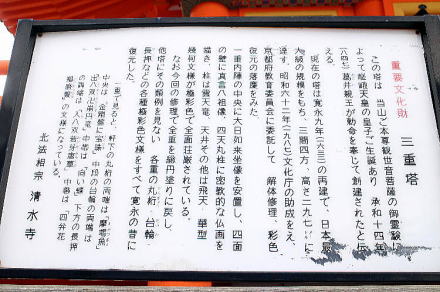 重要文化財 三重塔
この塔は 当山ご本尊観世音菩薩の御霊験に
よって嵯峨天皇の皇子ご生誕あり 承和十四年
(八四七)葛井親王が勅命を奉じて創建されたと伝
える。
現在の塔は寛永九年(一六三二)の再建で、日本最
大級の規模をもち、三間四方、高さ二九.七
達す、昭和六十二年(一九八七)文化庁の助成をえ、
京都府教育委員会に委託して 解体修理、彩色
復元の落慶をみた。
一重内陣の中央に大日如来坐像を安置し、四面
の壁に真言八祖像、四天丸柱に密教的な仏画を
描き、柱は雲天竜、天井その他は飛天 華型
幾何文様が極彩色で全面荘厳されている。
なお今回の修理で全重を総丹塗りに戻し、
他塔にその類例を見ない 各重の丸桁 台輪
長押などの各種極彩色文様をすべて寛永の昔に
復元した。
一重で見ると 軒下の丸桁の両端は
中央は
の両端は
の文様になっている。
北法相宗 清水寺